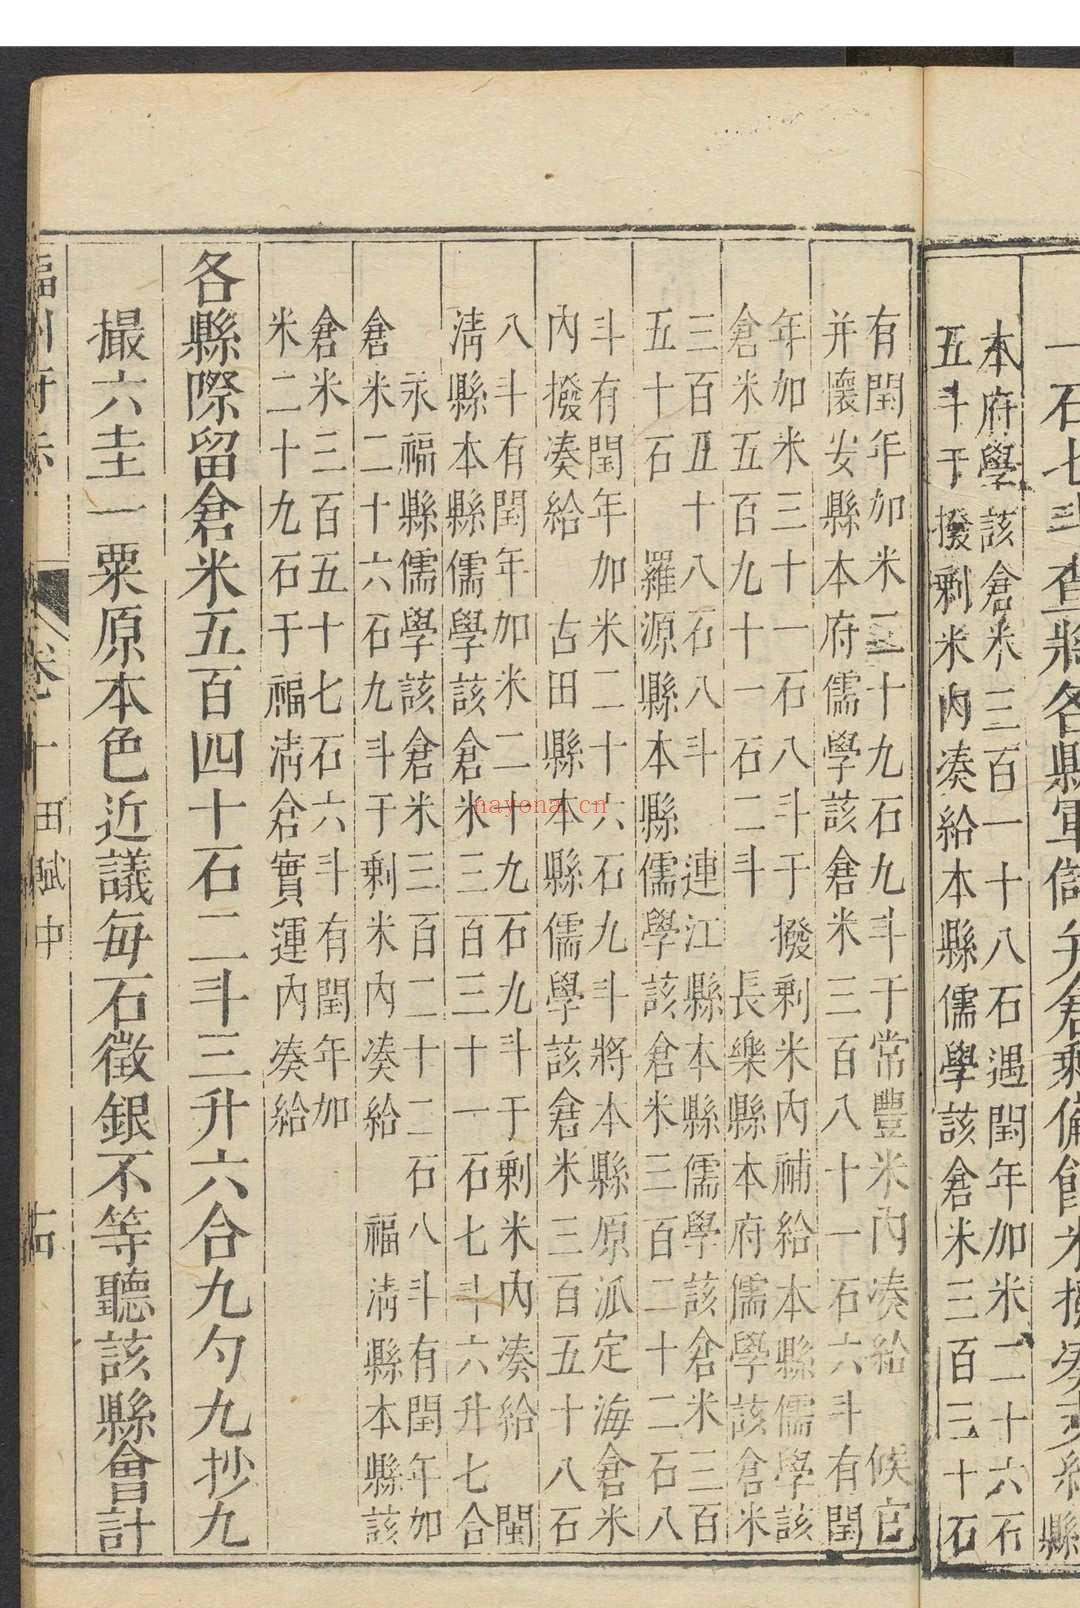 一石七斗查將各縣軍儲
本府學該倉米三百一十八石遇閏年加米二十六石
五斗于撥剩米內湊給本縣儒學該倉米三百三十石
有閏年加米二十九石九斗于常豐米內湊給 候官
并懷安縣本府儒學該倉米三百八十一石六斗有閏
年加米三十一石八斗于撥剩米內補給本縣儒學該
倉米五百九十一石二斗 長樂縣本府儒學該倉米
三百五十八石八斗 連江縣本縣儒學該倉米三百
五十石 羅源縣本縣儒學該倉米三百二十二石八
斗有閏年加米二十六石九斗將本縣原派定海倉米
內撥湊給 古田縣本縣儒學該倉米三百五十八石
八斗有閏年加米二十九石九斗于剩米內湊給 閩
清縣本縣儒學該倉米三百三十一石七斗六升七合
永福縣儒學該倉米三百二十二石八斗有閏年加
倉米二十六石九斗于剩米內湊給 福清縣本縣該
倉米三百五十七石六斗有閏年加
米二十九石于福清倉實運內湊給
各縣際留倉米五百四十石二斗三升六合九勺九抄九
撮六圭一粟原本色近議每石徵銀不等聽該縣會計
福州府志 卷 田賦中
nayona.cn